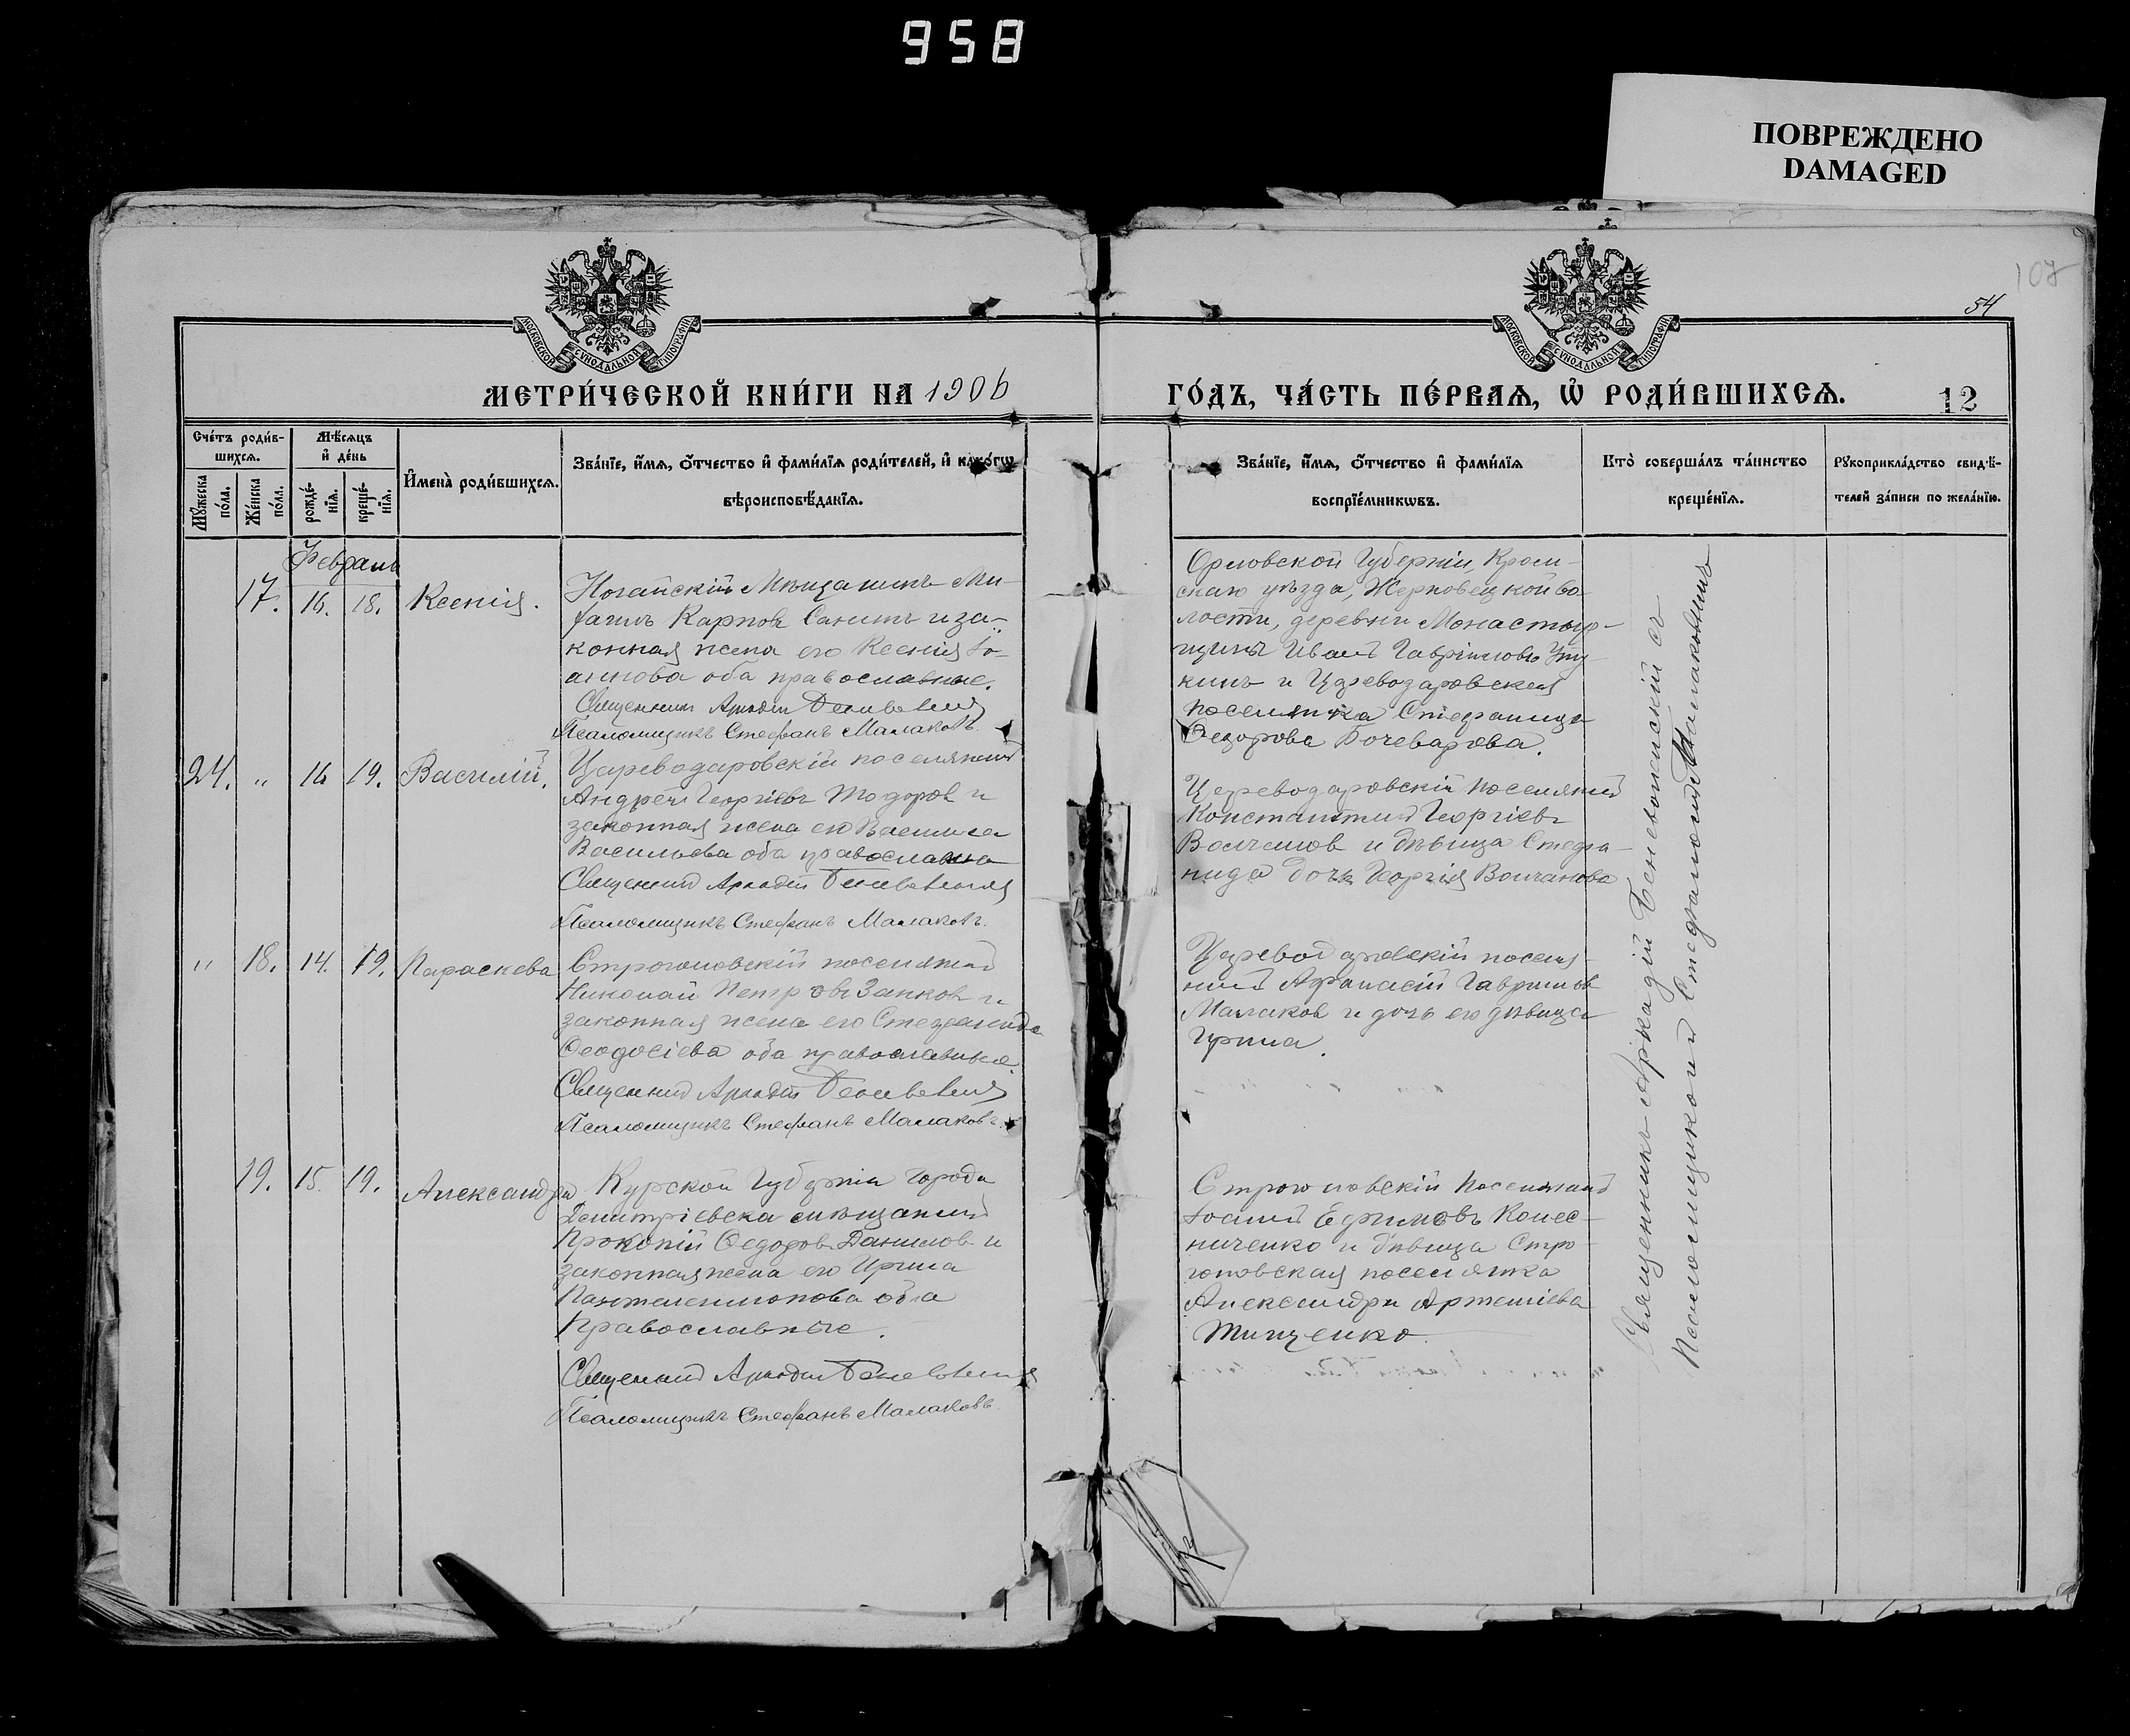 958
ПОВРЕЖДЕНО
DAMAGED
107
54
МОСКОВСКОЙ СѴНОДАЛЬНОЙ ТИПОГРАФІИ
МОСКОВСКОЙ СѴНОДАЛЬНОЙ ТИПОГРАФІИ
МЕТРИ́ЧЕСКОЙ КНИ́ГИ НА 1906
ГО́ДЪ, ЧА́СТЬ ПЕ́РВАѦ, Ѡ҆ РОДИ́ВШИХСѦ.
12
Счéтъ роди́в-
шихсѧ.
Мꙋ́жеска по́ла.
Же́нска по́ла.
Мѣ́сѧцъ
и҆ де́нь
рожде́-
нїѧ.
креще́-
нїѧ.
И҆мена̀ роди́вшихсѧ.
Зва́нїе, и҆́мѧ, ѻ҆́тчество и҆ фами́лїѧ роди́телей, и҆ како́гѡ
вѣроисповѣ́данїѧ.
Зва́нїе, и҆́мѧ, ѻ҆́тчество и҆ фами́лїѧ
воспрїе́мникѡвъ.
Кто̀ соверша́лъ та́инство
креще́нїѧ.
Рꙋкоприкла́дство свидѣ́-
телей за́писи по жела́нїю.
Февраль
17. 16. 18. Ксенія.
Ногайскій Мѣщанинъ Ми-
Карповъ Санинъ и за-
конная жена его Ксенія Іо-
аннова оба православные.
Священникъ Аркадій Беневоленскій
Псаломщикъ Стефанъ Малаковъ.
Орловской Губерніи, Кром-
скаго уѣзда, Жерновецкой во-
лости, деревни Монастыр-
щины Иванъ Гавріиловъ
и Цареводаровская
поселянка Стефанида
Ѳедорова Бочеварова.
24. " 16 19. Василій.
Цареводаровскій поселянинъ
Андрей Георгіевъ Тодоровъ и
законная жена его Василиса
Васильева оба православна
Священникъ Аркадій Беневоленскій
Псаломщикъ Стефанъ Малаковъ.
Цареводаровскій поселянинъ
Константинъ Георгіевъ
Волчановъ и дѣвица Стефа-
нида дочь Георгія Волчанова
" 18. 14. 19. Параскева
Строгоновскій поселянинъ
Николай Петровъ Занковъ и
законная жена его Стефанида
Ѳеодосіева оба православные.
Священникъ Аркадій Беневоленскій
Псаломщикъ Стефанъ Малаковъ.
Цареводаровскій поселя-
нинъ Афанасій Гавриловъ
Малаковъ и дочь его дѣвица
Ирина.
19. 15. 19. Александра
Курской Губерніи города
Дмитріевска мѣщанинъ
Прокопій Ѳедоровъ Даниловъ и
законная жена его Ирина
Пантелеимонова оба
Православные.
Священникъ Аркадій Беневоленскій
Псаломщикъ Стефанъ Малаковъ
Строгоновскій Поселянинъ
Іоаннъ Ефимовъ Колес-
ниченко и дѣвица Стро-
гоновская поселянка
Александра Артеміева
Тищенко.
Священникъ Аркадій Беневоленскій съ
Псаломщикомъ Стефаномъ Малаковымъ